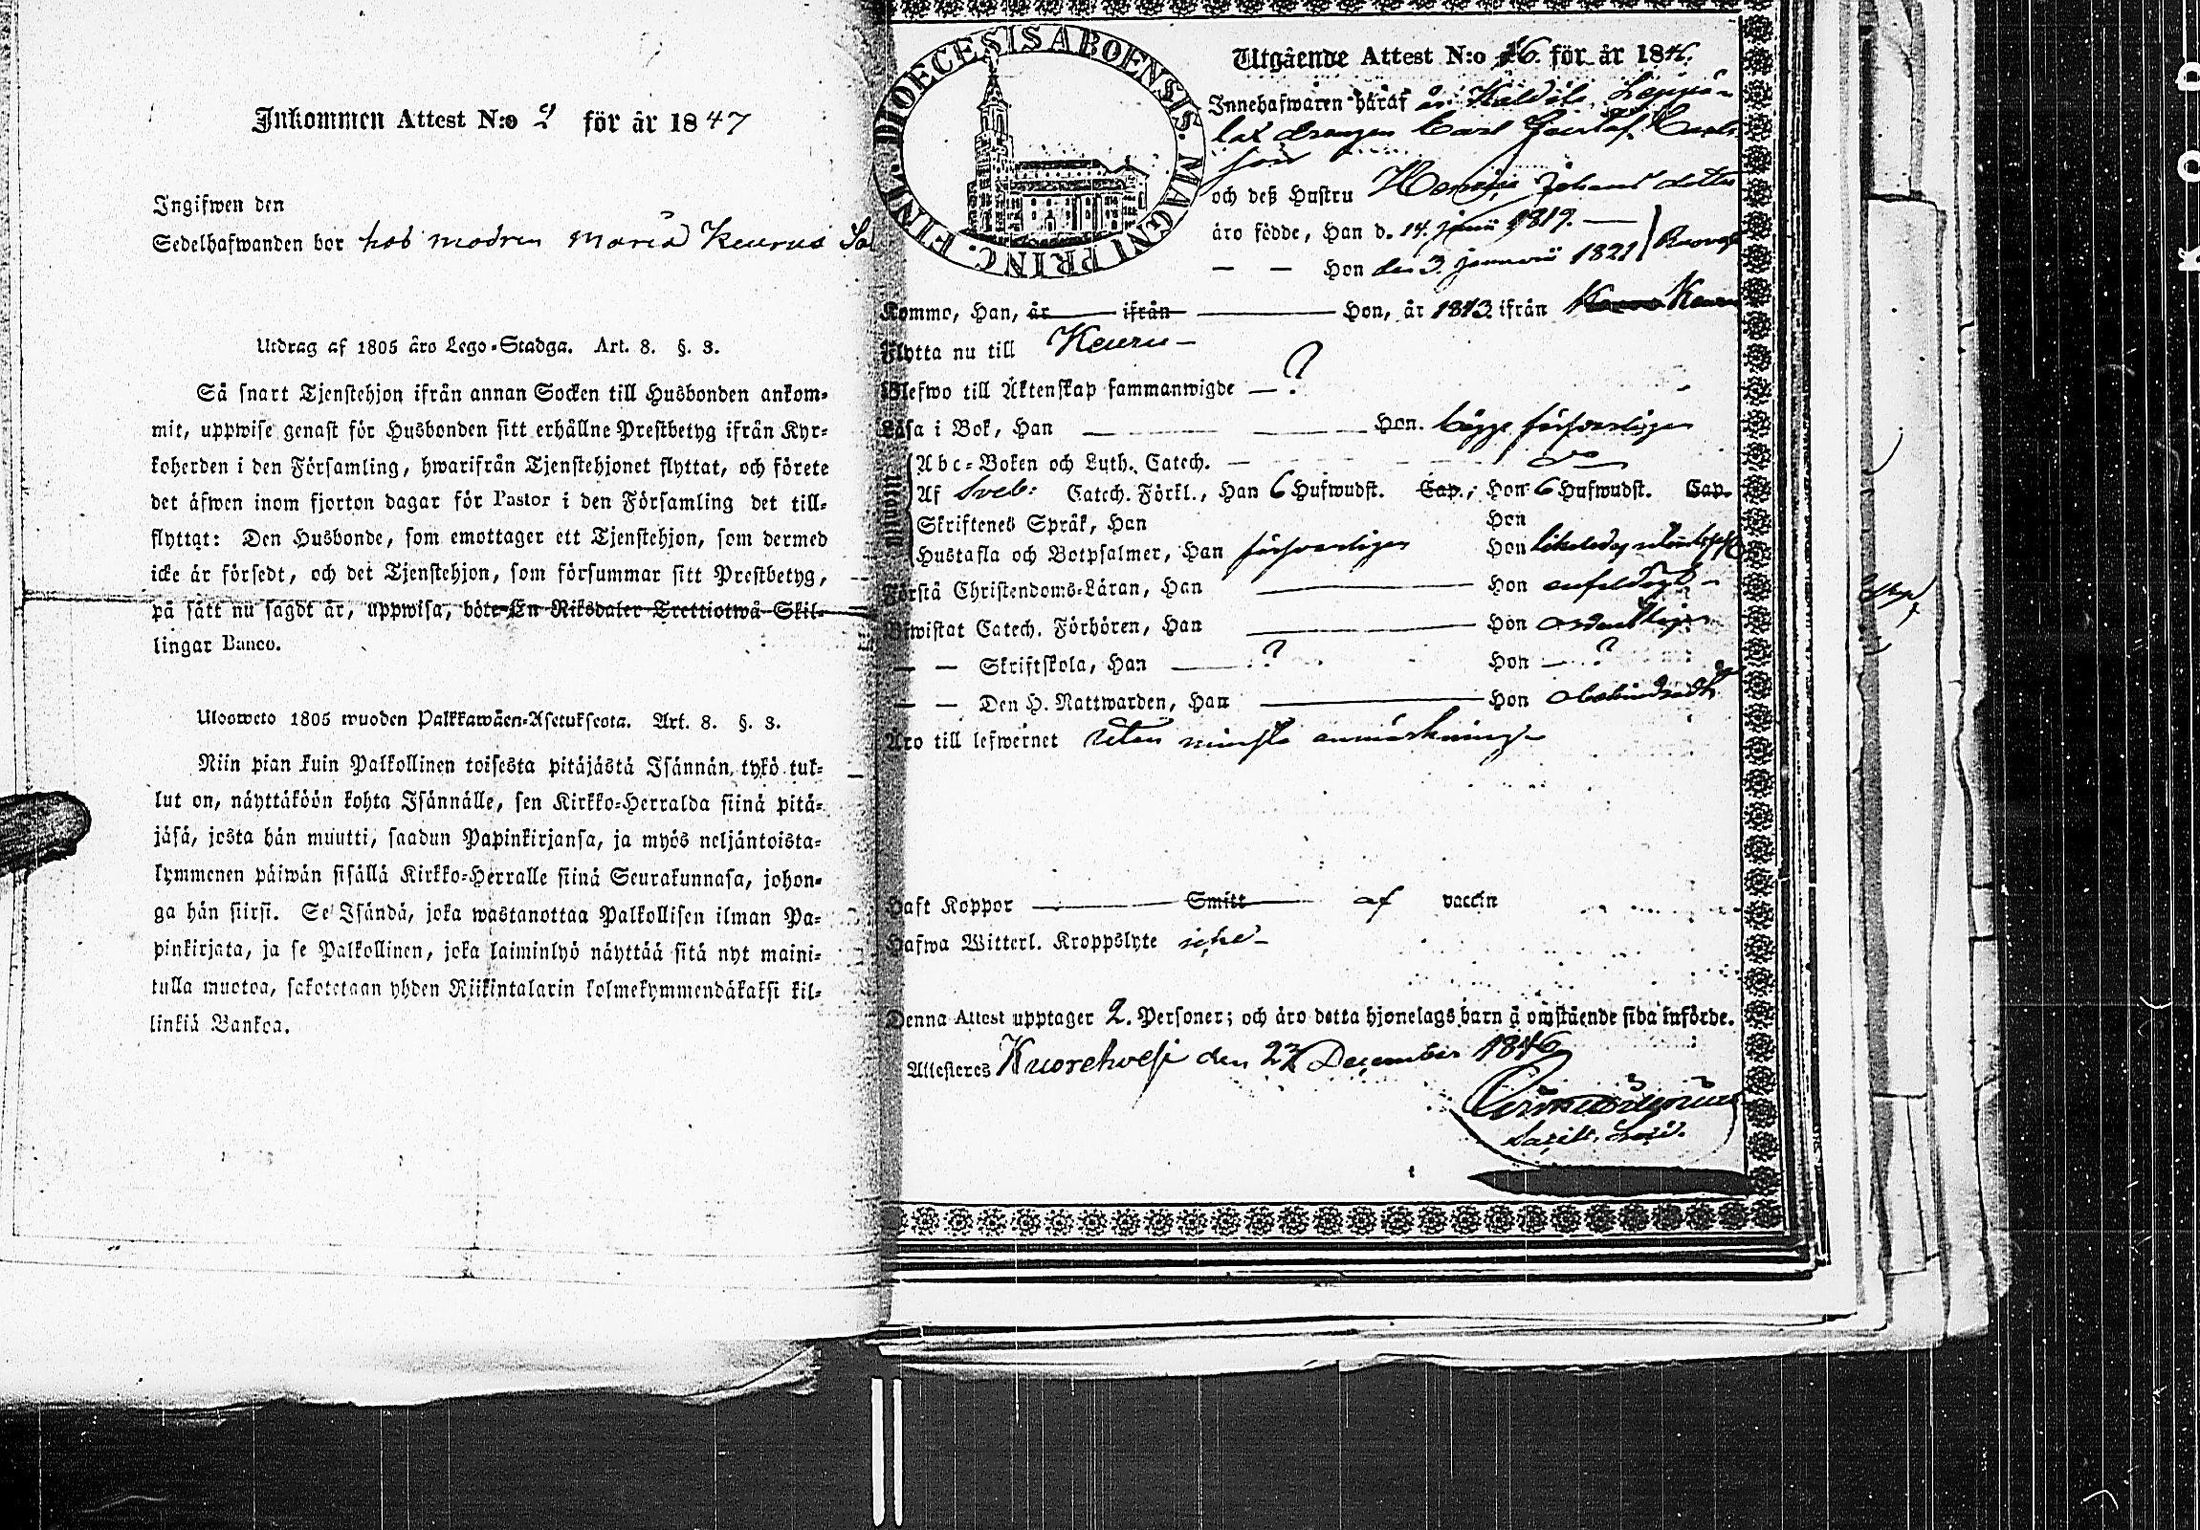 Inkommen Attest N:o 2 för år 1847
Ingifwen den
Sedelhafwanden bor hos modren Maria Keurus
Utdrag af 1805 åro Lego-Stadga. Art. 8. §. 3.
Så snart Tjenstehjon ifrån annan Socken till Husbonden ankom-
mit, uppwise genast för Husbonden sitt erhållne Prestbetyg ifrån Kyr-
koherden i den Församling, hwarifrån Tjenstehjonet flyttat, och förete
det äfwen inom fjorton dagar för Pastor i den Församling det till-
flyttat: Den Husbonde, som emottager ett Tjenstehjon, som dermed
icke är försedt, och det Tjenstehjon, som försummar sitt Prestbetyg,
på sätt nu sagdt är, uppwisa, böte En Riksdaler Trettiotwå Skil-
lingar Banco.
Ulosweto 1805 wuoden Palkkawäen-Asetuksesta. Art. 8. §. 3.
Niin pian kuin Palkollinen toisesta pitäjästä Isännän tykö tul-
lut on, näyttäköön kohta Isännälle, sen Kirkko-Herralda siinä pitä-
jäsä, josta hän muutti, saadun Papinkirjansa, ja myös neljäntoista-
kymmenen päiwän sisällä Kirkko-Herralle siinä Seurakunnasa, johon-
ga hän siirsi. Se Isändä, joka wastanottaa Palkollisen ilman Pa-
pinkirjata, ja se Palkollinen, joka laiminlyö näyttää sitä nyt maini-
tulla muotoa, sakotetaan yhden Riikintalarin kolmekymmendäkaksi kil-
linkiä Bankoa.
DIOECESIS ABOENSIS. MAGNI PRINC. FINL.
Utgående Attest N:o 16. för år 1846.
Innehafwaren häraf är
drängen Carl Gustaf Carls
son
och deß Hustru Johansdotter
äro födde, Han d. 14. Junii 1819.
— — Hon den 3. Januarii 1821
Kommo, Han, år ifrån Hon, år 1843 ifrån Keuru
Flytta nu till Keuru
Blefwo till Äktenskap sammanwigde — ?
Läsa i Bok, Han Hon. bägge försvarligen
Abc-Boken och Luth. Catech. do
Af Sveb: Catech. Förkl., Han 6 Hufwudst. Cap.; Hon 6 Hufwudst. Cap.
Skriftenes Språk, Han Hon
Hustafla och Botpsalmer, Han försvarligen Hon likaledes
Förstå Christendoms-Läran, Han Hon enfaldigt
Biwistat Catech. Förhören, Han Hon ordentligen
— — Skriftskola, Han ? Hon — ?
— — Den H. Nattwarden, Han Hon obehindradt
Äro till lefwernet utan minsta anmärkning
Haft Koppor Smitt af vaccin
Hafwa Witterl. Kroppslyte icke
Denna Attest upptager 2. Personer; och äro detta hjonelags barn å omstående sida införde.
Attesteres Kuorehvesi den 22 December 1846
KOD